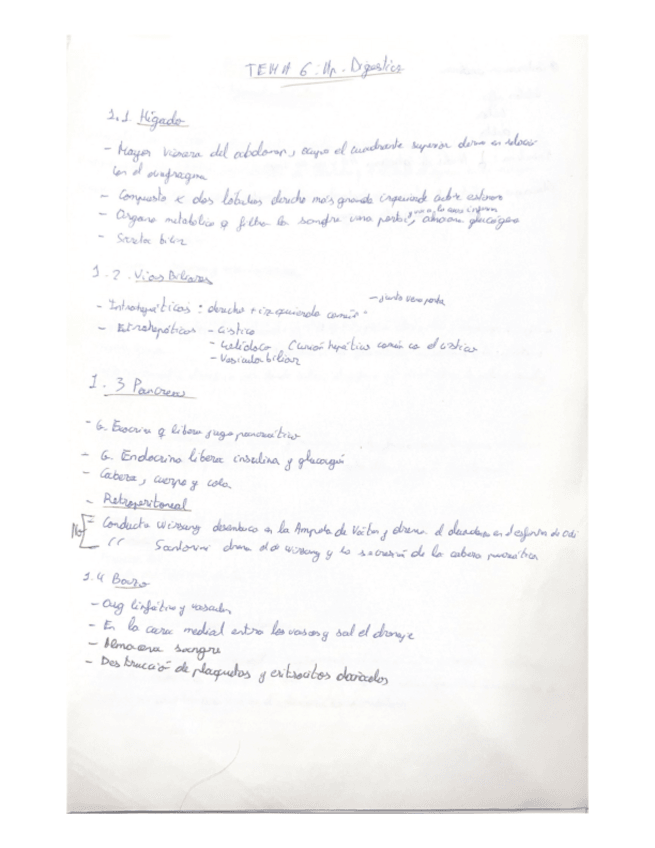 TEMA 6: Ap. Digestivo
1.1 Hígado
- Mayor víscera del abdomen, ocupa el cuadrante superior derecho en relación
con el diafragma
- Compuesto x dos lóbulos derecho más grande izquierdo sobre estómago
- Órgano metabólico q filtra la sangre vena porta, almacena glucógeno
- Secreta bilis
1.2. Vías Biliares
- Intrahepáticos: derecho + izquierdo común
- junto vena porta
- Extrahepáticos - Cístico
- Colédoco Común hepático común co el cístico
- Vesícula biliar
1.3 Pancreas
- G. Exocrina q libera jugo pancreático
- G. Endocrina libera insulina y glucagón
- Cabeza, cuerpo y cola.
- Retroperitoneal
- Conducto Wirsung desemboca en la Ampolla de Váter y drena al duodeno en el esfinter de Odi
" Santorini drena el de Wirsung y la secreción de la cabeza pancreática
1.4 Bazo
- Org linfático y vascular
- En la cara medial entra los vasos y sal el drenaje
- Almacena sangre
- Destrucció de plaquetas y eritrocitos dañados